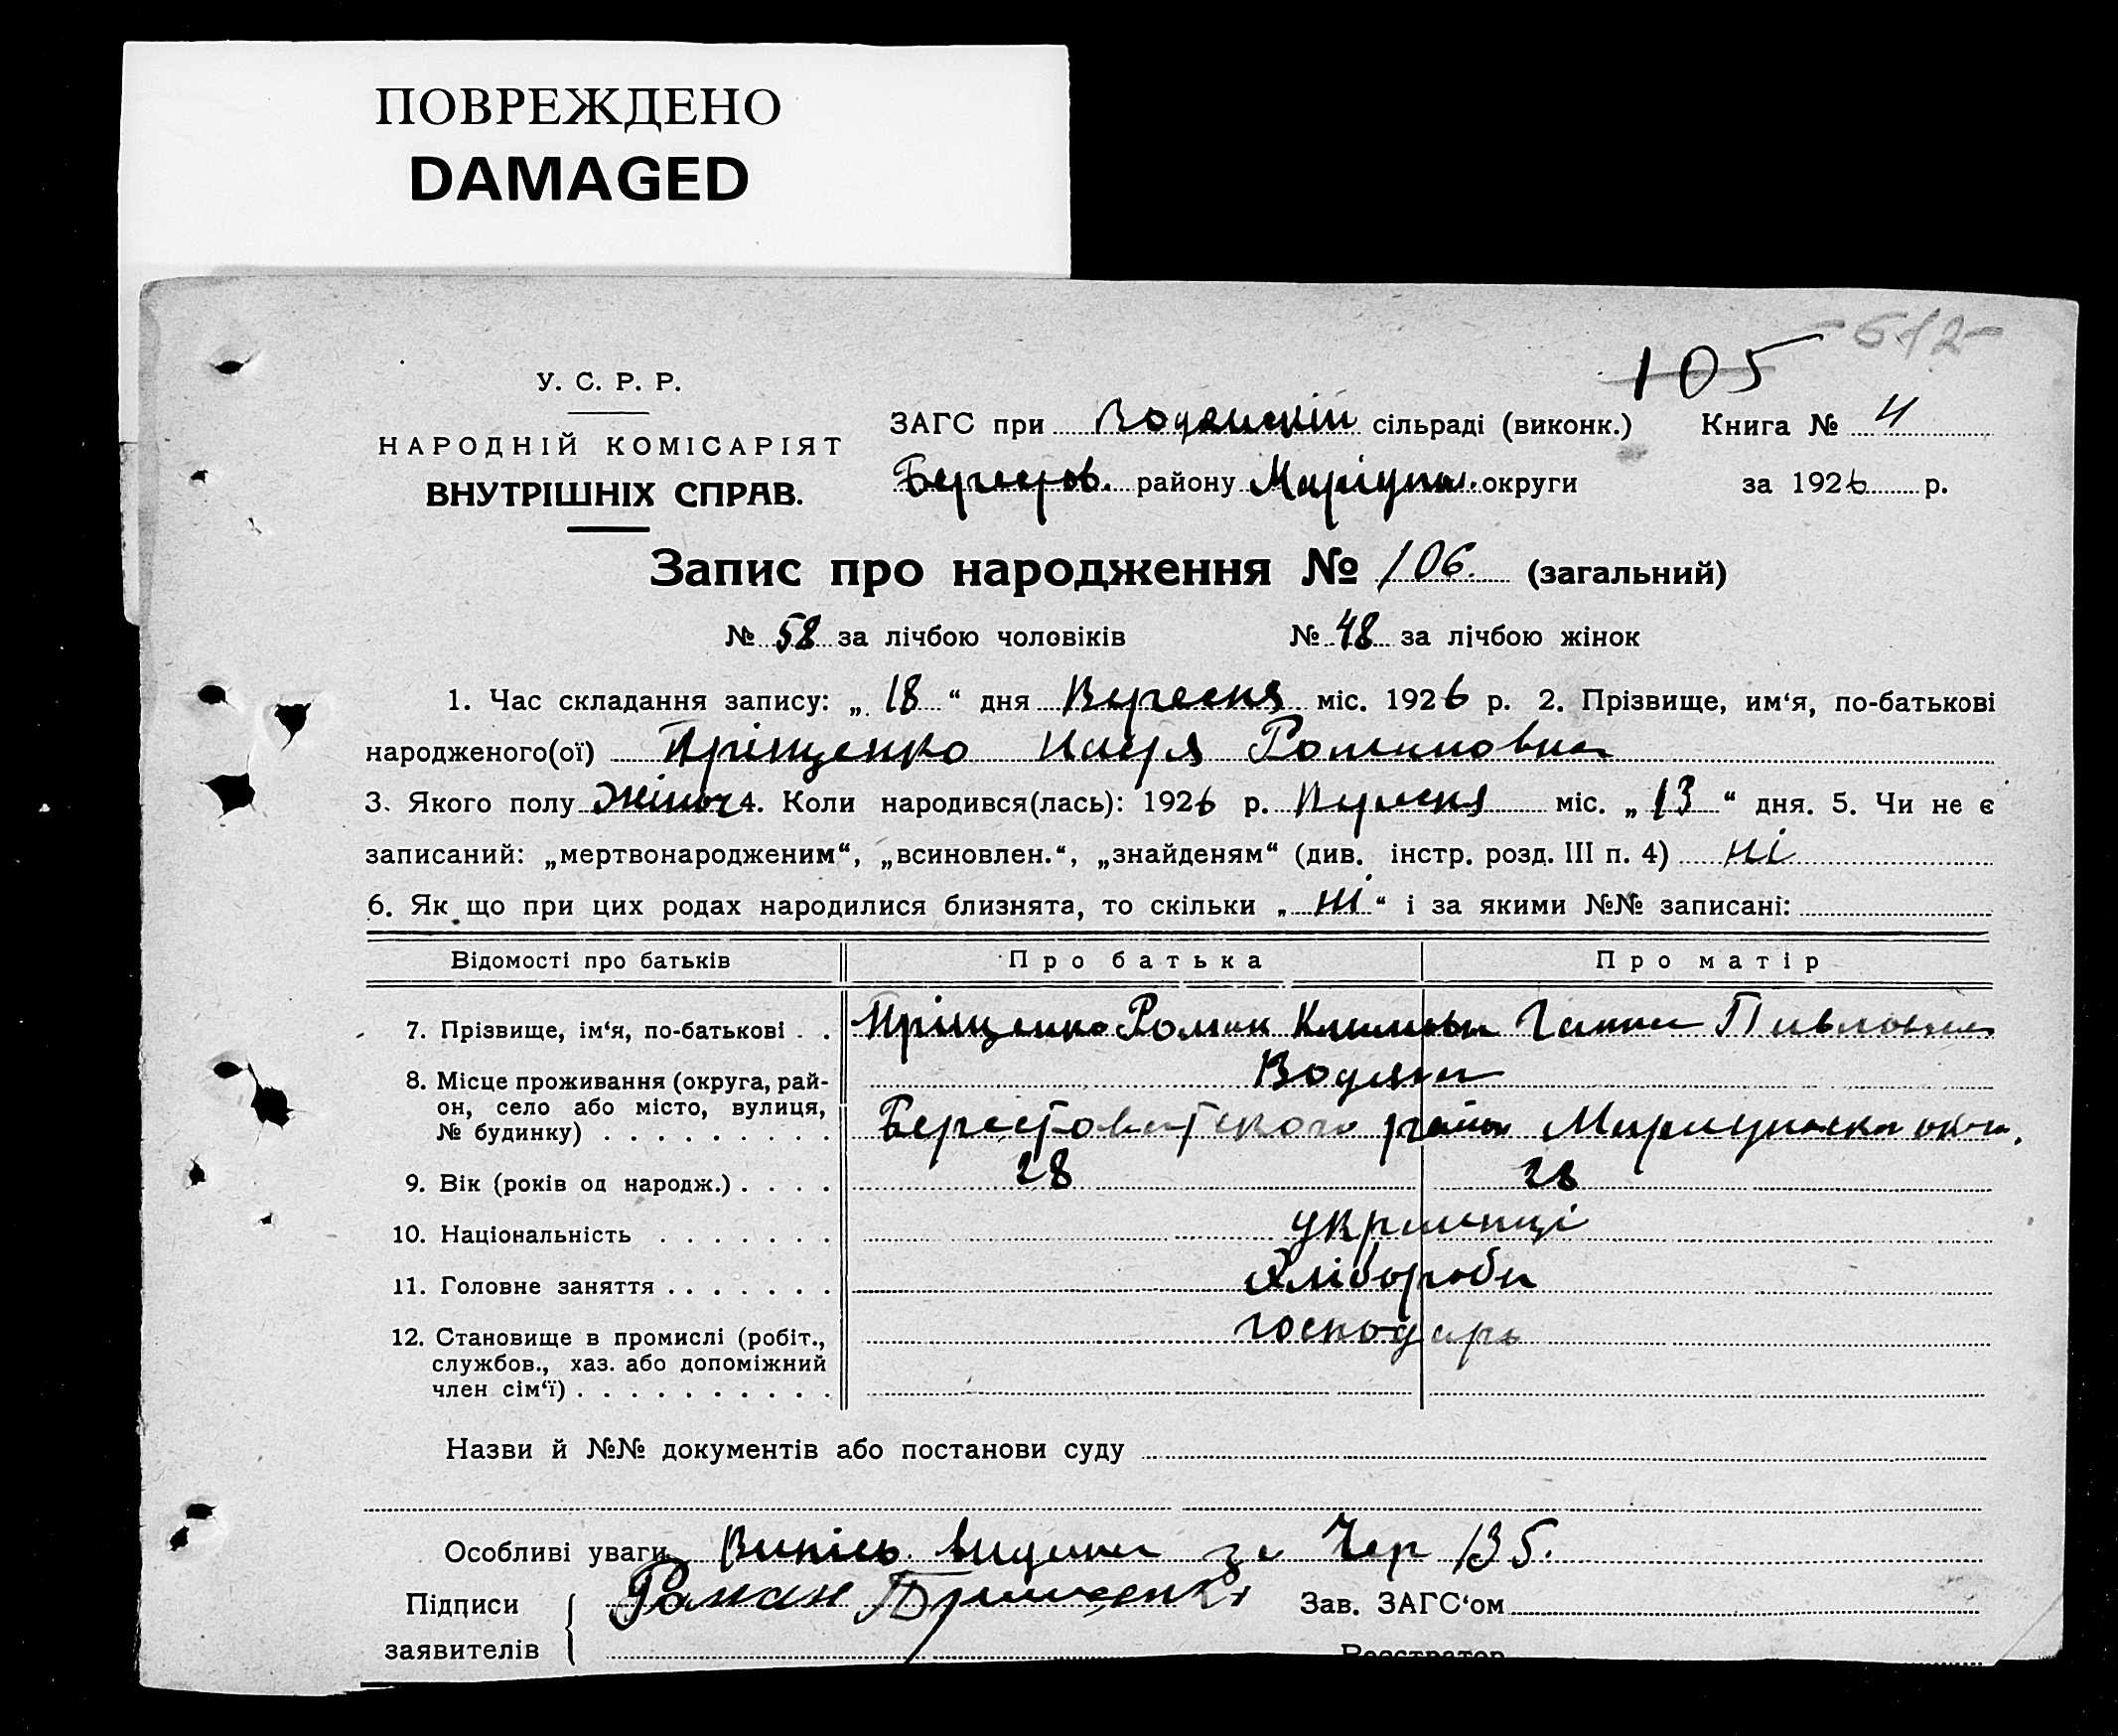 ПОВРЕЖДЕНО
DAMAGED
612
105
У. С. Р. Р.
НАРОДНІЙ КОМІСАРІЯТ
ВНУТРІШНІХ СПРАВ.
ЗАГС при сільраді (виконк.) Книга № 4
Берестов. району Маріуп. округи за 1926 р.
Запис про народження № 106. (загальний)
№ 58 за лічбою чоловіків № 48 за лічбою жінок
1. Час складання запису: „ 18 “ дня Вересня міс. 1926 р. 2. Прізвище, им‘я, по-батькові
народженого(ої) Пріщенко Романовна
3. Якого полу жіноч 4. Коли народився(лась): 1926 р. Вересня міс. „ 13 “ дня. 5. Чи не є
записаний: „мертвонародженим“, „всиновлен.“, „знайденям“ (див. інстр. розд. III п. 4) ні
6. Як що при цих родах народилися близнята, то скільки „ ні “ і за якими №№ записані:
Відомості про батьків Про батька Про матір
7. Прізвище, ім‘я, по-батькові . . Пріщенко Роман Ганна Павловна
8. Місце проживання (округа, рай-
он, село або місто, вулиця,
№ будинку) . . . . . . . . .
Водяна
Берестоватского району
9. Вік (років од народж.) . . . . 28 28
10. Національність . . . . . . . українці
11. Головне заняття . . . . . . . Хлібороби
12. Становище в промислі (робіт.,
службов., хаз. або допоміжний
член сім‘ї) . . . . . . . . . .
господарь
Назви й №№ документів або постанови суду
Особливі уваги Випісь видана за Чер 135.
Підписи Роман Пріщенко Зав. ЗАГС‘ом
заявителів Реєстратор